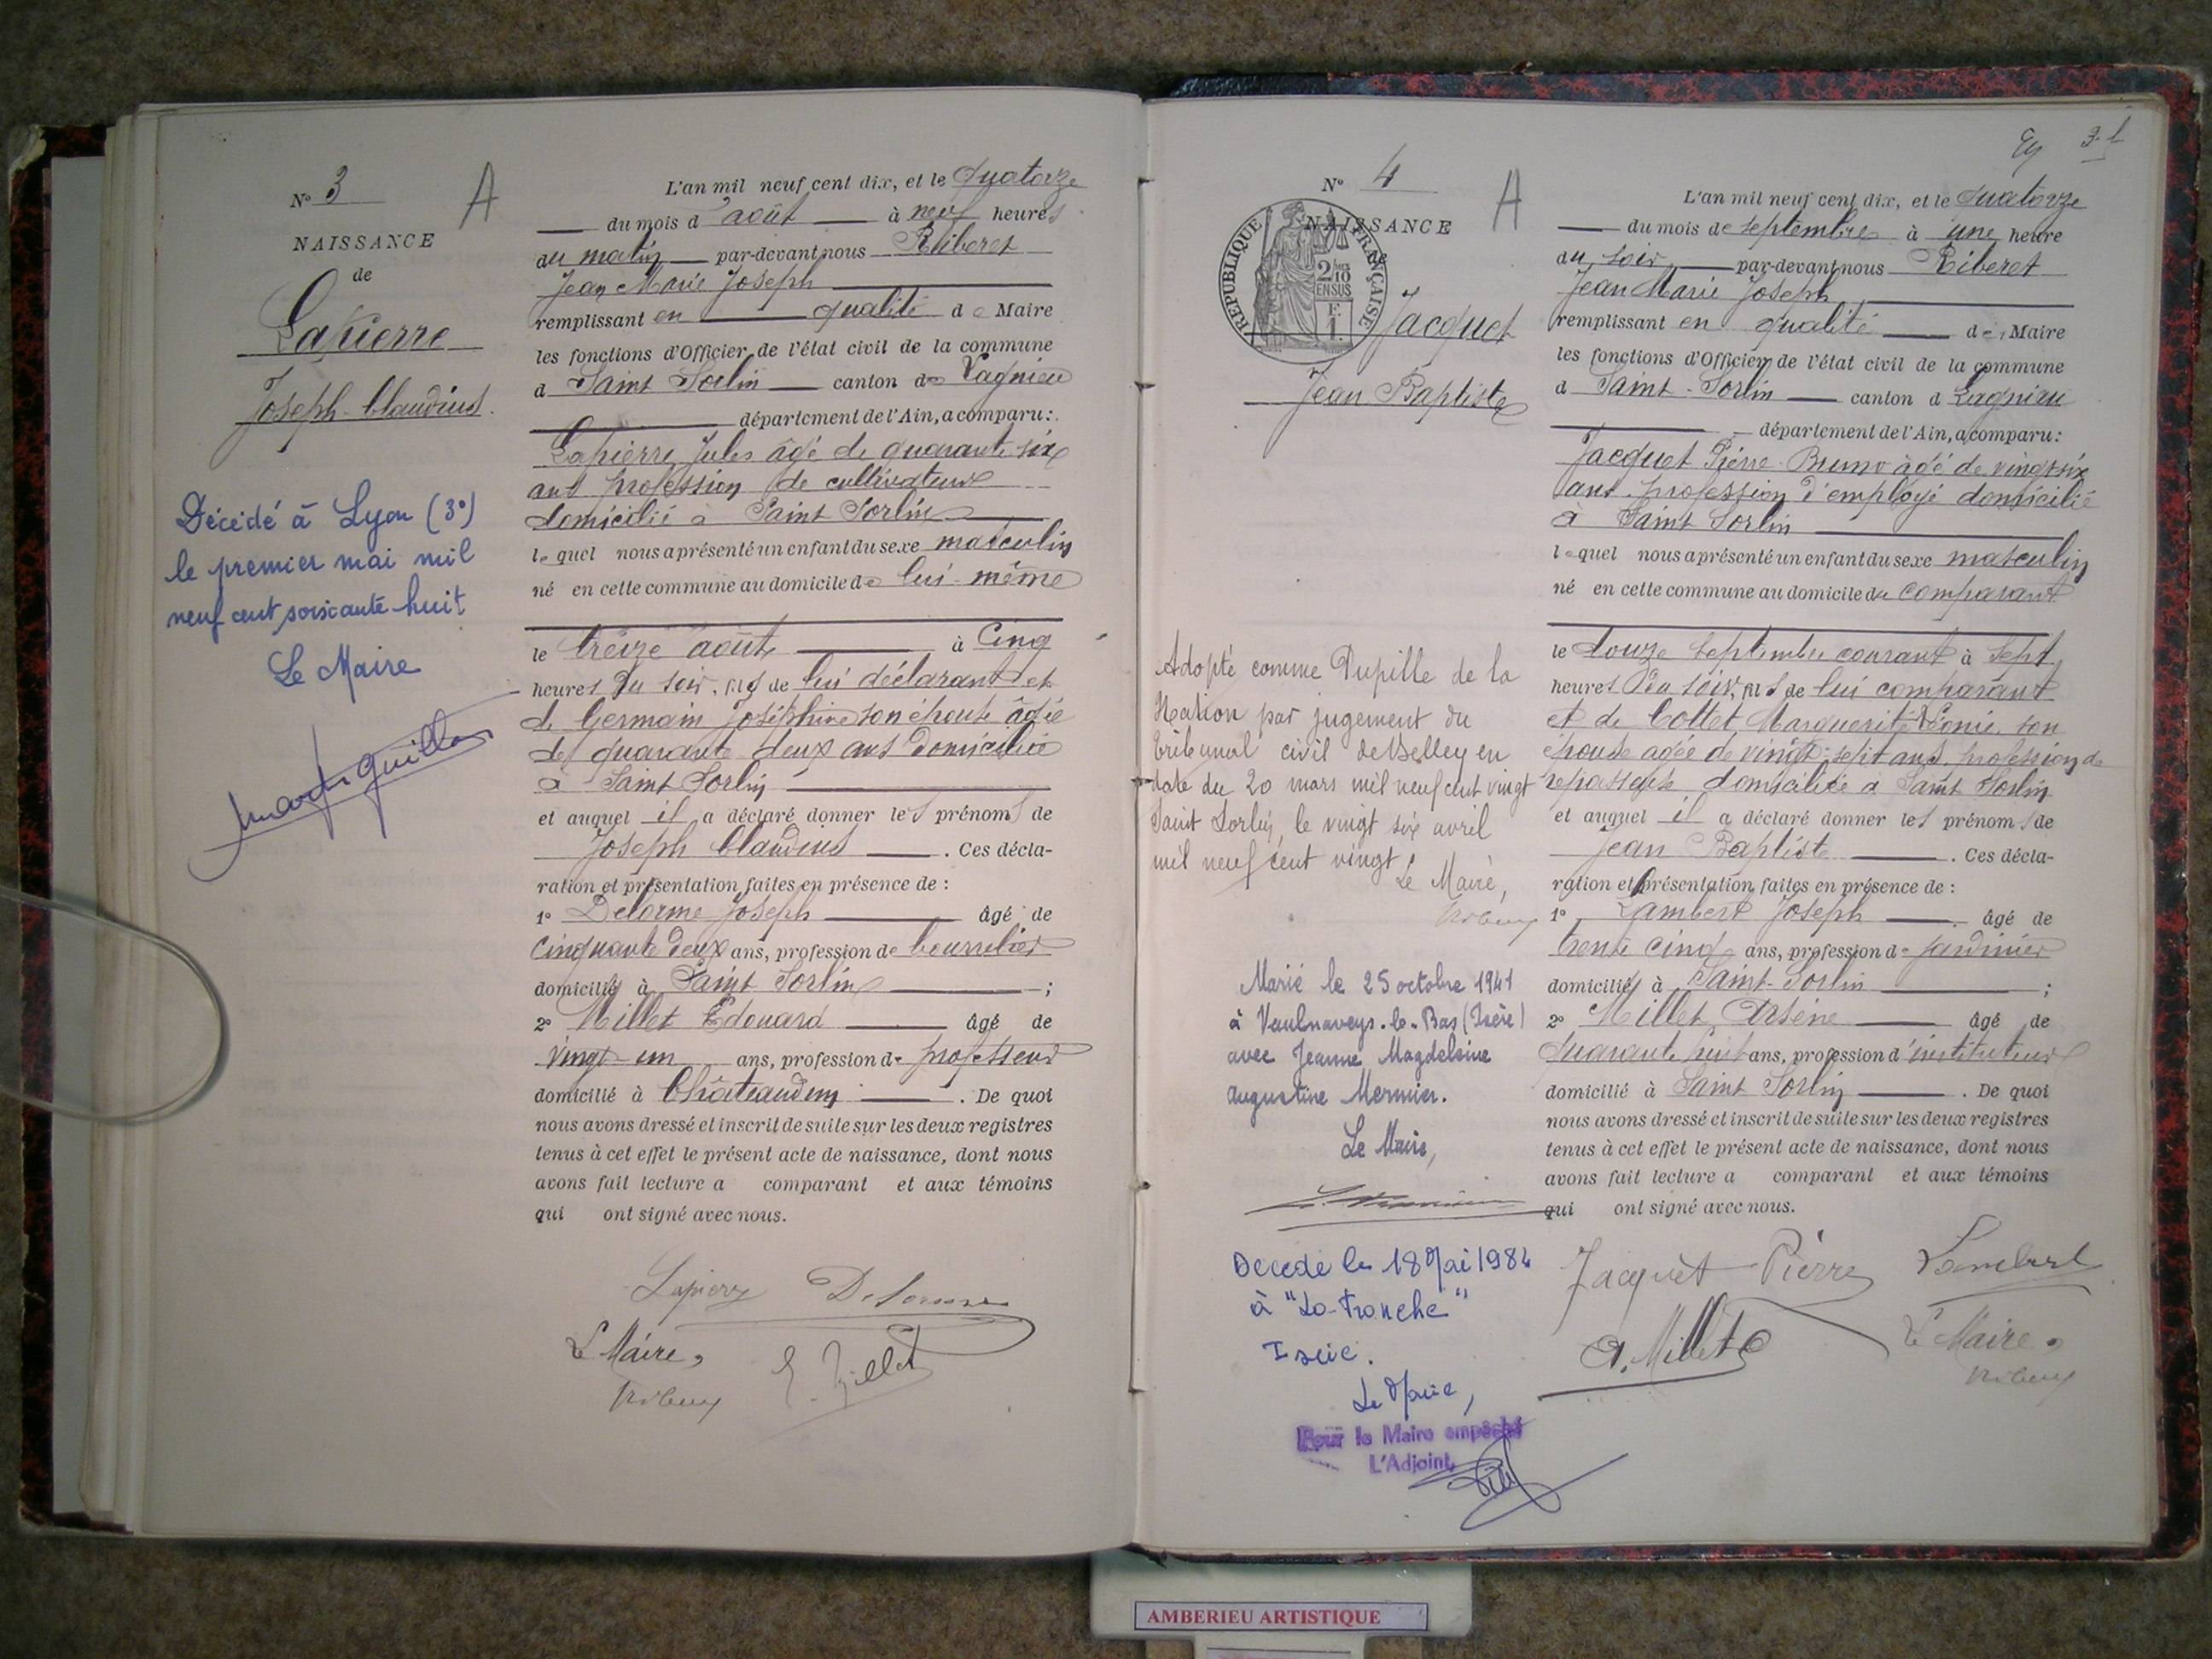 N° 3
A
NAISSANCE
de
Lapierre
Joseph-Claudius.
Décédé à Lyon (3°)
le premier mai mil
neuf cent soixante-huit
Le Maire
L'an mil neuf cent dix, et le quatorze
du mois d'août à neuf heures
du matin par-devant nous Riberet
Jean Marie Joseph
remplissant en qualité de Maire
les fonctions d'Officier de l'état civil de la commune
d Saint Sorlin canton de Lagnieu
département de l'Ain, a comparu:
Lapierre Jules âgé de quarante six
ans profession de cultivateur
domicilié à Saint Sorlin
lequel nous a présenté un enfant du sexe masculin
né en cette commune au domicile de lui-même
le treize août à cinq
heures du soir, fils de lui déclarant et
de Germain Joséphine son épouse âgée
de quarante deux ans domiciliée
à Saint Sorlin
et auquel il a déclaré donner les prénoms de
Joseph Claudius . Ces décla-
ration et présentation faites en présence de :
1° Delorme Joseph âgé de
cinquante deux ans, profession de bourrelier
domicilié à Saint Sorlin ;
2° Millet Edouard âgé de
vingt-un ans, profession de professeur
domicilié à Châteaudun . De quoi
nous avons dressé et inscrit de suite sur les deux registres
tenus à cet effet le présent acte de naissance, dont nous
avons fait lecture a comparant et aux témoins
qui ont signé avec nous.
Lapierre Delorme
Le Maire, E. Millet
N° 4
A
NAISSANCE
de
REPUBLIQUE FRANÇAISE
2/10
EN SUS
Jacquet
Jean Baptiste
Adopté comme Pupille de la
Nation par jugement du
tribunal civil de Belley en
date du 20 mars mil neuf cent vingt
Saint Sorlin, le vingt six avril
mil neuf cent vingt
Le Maire,
Marié le 25 octobre 1941
à Vaulnaveys-le-Bas (Isère)
avec Jeanne Magdeleine
Augustine Mermier.
Le Maire,
Decede le 18 Mai 1984
à "La Tronche"
Isere.
Le Maire,
Pour le Maire empêché
L'Adjoint,
L'an mil neuf cent dix, et le quatorze
du mois de septembre à une heure
du soir par-devant nous Riberet
Jean Marie Joseph
remplissant en qualité de Maire
les fonctions d'Officier de l'état civil de la commune
d Saint-Sorlin canton d Lagnieu
département de l'Ain, a comparu:
Jacquet Pierre Bruno âgé de vingt six
ans profession d'employé domicilié
à Saint Sorlin
lequel nous a présenté un enfant du sexe masculin
né en cette commune au domicile du comparant
le douze septembre courant à sept
heures du soir, fils de lui comparant
et de Cottet Marguerite son
épouse agée de vingt-sept ans, profession de
repasseuse domiciliée à Saint Sorlin
et auquel il a déclaré donner les prénoms de
Jean Baptiste . Ces décla-
ration et présentation faites en présence de :
1° Lambert Joseph âgé de
trente cinq ans, profession de jardinier
domicilié à Saint-Sorlin ;
2° Millet Arsène âgé de
quarante huit ans, profession d'instituteur
domicilié à Saint Sorlin . De quoi
nous avons dressé et inscrit de suite sur les deux registres
tenus à cet effet le présent acte de naissance, dont nous
avons fait lecture a comparant et aux témoins
qui ont signé avec nous.
Jacquet Pierre Lambert
A. Millet Le Maire,
AMBERIEU ARTISTIQUE